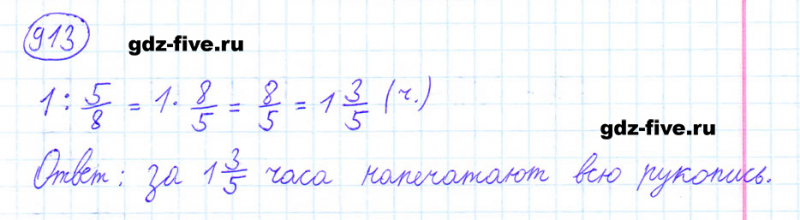 913
gdz-five.ru
1 : 5/8 = 1 · 8/5 = 8/5 = 1 3/5 (ч.)
gdz-five.ru
Ответ: за 1 3/5 часа напечатают всю рукопись.